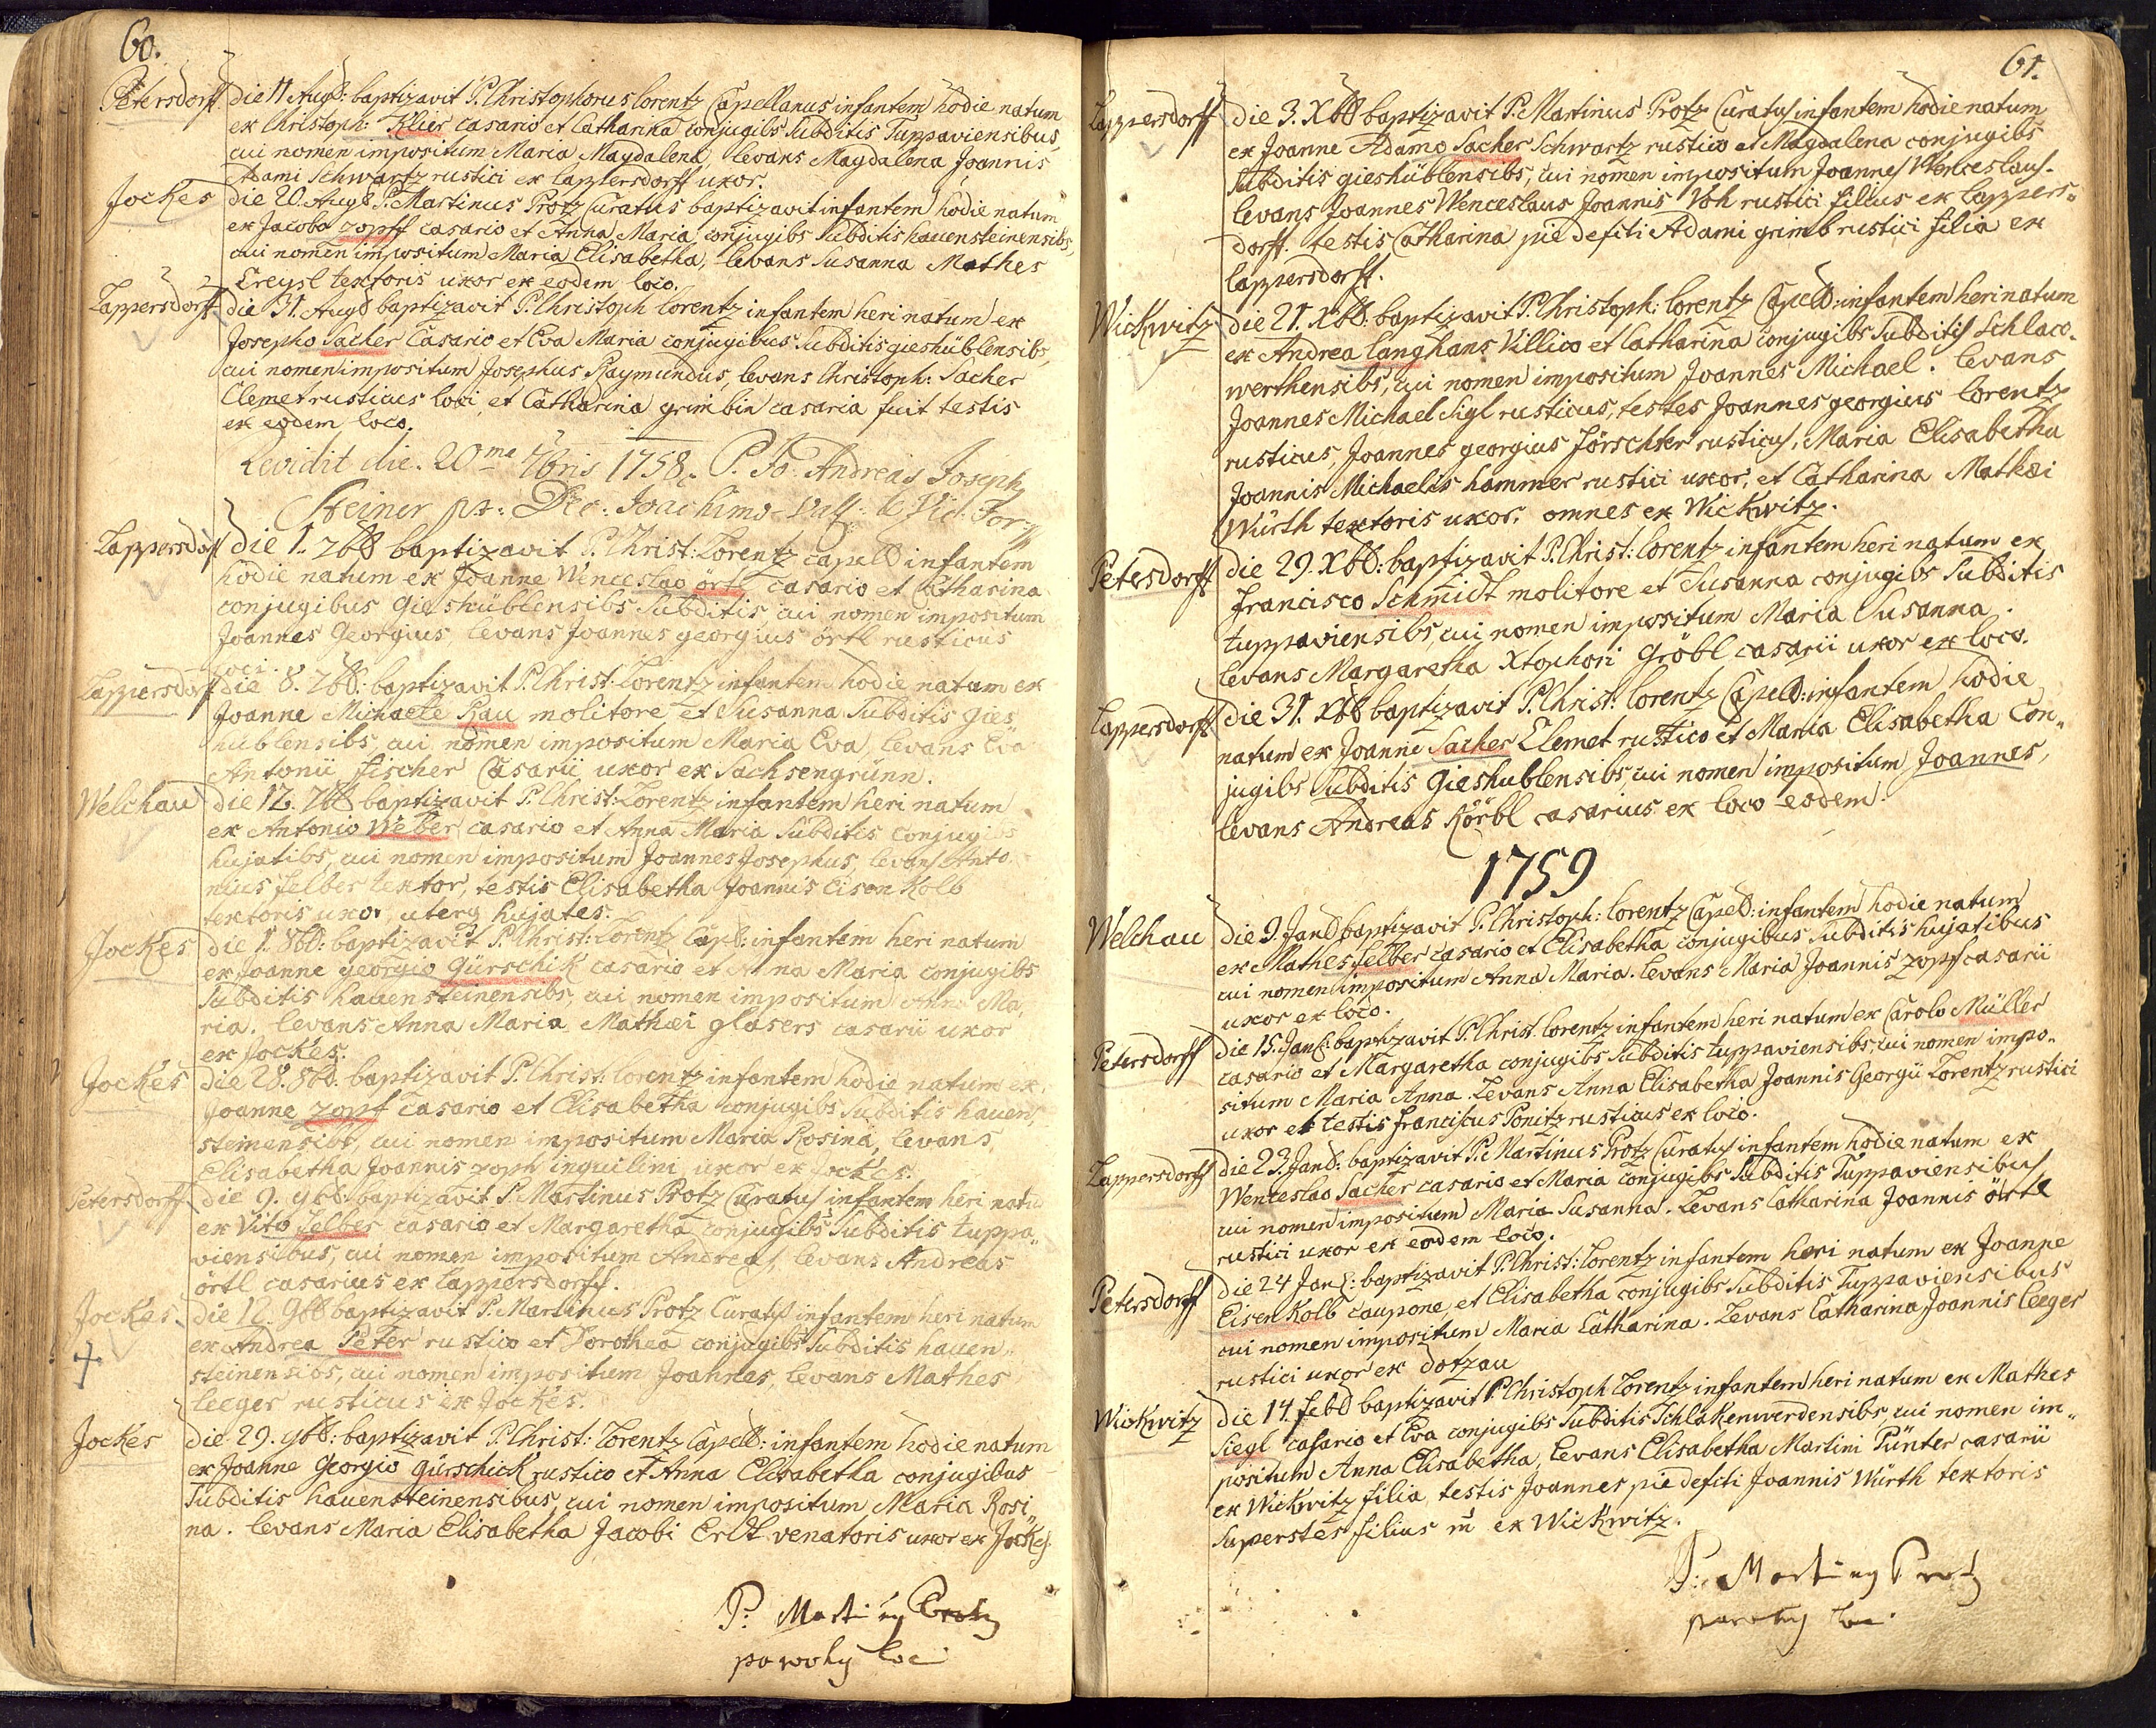 60.
Petersdorf. die 11 Augs: baptizavit P. Christophorus Lorentz Capellanus infantem hodie natum
ex Christoph: Klier casario et Catharina conjugibs subditis Tuppaviensibus,
cui nomen impositum Maria Magdalena, levans Magdalena Joannis
Adami Schwartz rustici ex uxor.
Jockes die 20. Aug P. Martinus Protz Curatus baptizavit infantem hodie natum
ex Jacobo zopff casario et Anna Maria conjugibs subditis hauensteinensibs,
cui nomen impositum Maria Elisabetha, levans Susanna Mathes
Creysl textoris uxor ex eodem loco.
Lappersdorff. die 31. Aug baptizavit P. Christoph Lorentz infantem heri natum ex
Josepho Sacher Casario et Eva Maria conjugibus subditis gieshüblensibs,
cui nomen impositum Josephus Raymundus, levans Christoph: Sacher
Clemet rusticus loci, et Catharina grimbin casaria fuit testis
ex eodem loco.
Revidit die. 20me 7bris 1758. P. Jo. Andreas Joseph
Steiner
Lappersdorf die 1. 7b baptizavit P. Christ: Lorentz capell infantem
hodie natum ex Joanne Wenceslao örtl casario et Catharina
conjugibus Gieshüblensibs subditis cui nomen impositum
Joannes Georgius levans Joannes georgius örtl rusticus
loci.
Lappersdorff die 8. 7b: baptizavit P. Christ: Lorentz infantem hodie natum ex
Joanne Michaele Rau molitore et Susanna subditis gies
hüblensibs, cui nomen impositum Maria Eva, levans Eva
Antonii fischer Casarii uxor ex Sachsengrünn.
Welchau die 12. 7b baptizavit P. Christ: Lorentz infantem heri natum
ex Antonio Weber casario et Anna Maria subditis conjugibs
hujatibs, cui nomen impositum Joannes Josephus, levans Anto
nius felber textor, testis Elisabetha Joannis Eisen Kolb
textoris uxor, uterq hujates.
Jockes die 1. 8b: baptizavit P. Christ: Lorentz Cap: infantem heri natum
ex Joanne georgio gürschik casario et Anna Maria conjugibs
subditis hauensteinensibs, cui nomen impositum Anna Ma,
ria. levans Anna Maria Mathæi glasers casarii uxor
ex Jockes.
Jockes die 28. 8b. baptizavit P. Christ: Lorentz infantem hodie natum ex
Joanne zopf casario et Elisabetha conjugibs subditis hauen,
steinensibs, cui nomen impositum Maria Rosina, levans
Elisabetha Joannis zoph inquilini uxor ex Jockes.
Petersdorff die 9. 9b. baptizavit P. Martinus Protz Curatus infantem heri natu
ex Vito felber casario et Margaretha conjugibs subditis tuppa„
viensibus, cui nomen impositum Andreas, levans Andreas
örtl casarius ex Lappersdorff.
Jockes. die 12. 9b baptizavit P. Martinus Protz Curatus infantem heri natum
+ ex Andrea Peter rustico et Dorothea conjugibs subditis hauen„
steinensibs, cui nomen impositum Joannes, levans Mathes
leeger rusticus ex Jockes.
Jockes die 29. 9b: baptizavit P. Christ: Lorentz Capell: infantem hodie natum
ex Joanne Georgio gürschick rustico et Anna Elisabetha conjugibus
subditis hauensteinensibus, cui nomen impositum Maria Rosi„
na. levans Maria Elisabetha Jacobi Erdt venatoris uxor ex Jockes.
P. Martinus Protz
parochus loci
61.
Lappersdorff die 3. Xb baptizavit P. Martinus Protz Curatus infantem hodie natum
ex Joanne Adamo Sacher Schwartz rustico et Magdalena conjugibs
subditis gieshüblensibs, cui nomen impositum Joannes Wenceslaus.
levans Joannes Wenceslaus Joannis Voh rustici filius ex Lappers„
dorff. testis Catharina pie defcti Adami grimb rustici filia ex
Lappersdorff.
Wickwitz die 21. Xb: baptizavit P. Christoph: Lorentz Capell: infantem heri natum
ex Andrea Langhans Villico et Catharina conjugibs subditis Schlaco„
werthensibs, cui nomen impositum Joannes Michael. levans
Joannes Michael Sigl rusticus, testes Joannes georgius Lorentz
rusticus, Joannes georgius förschter rusticus, Maria Elisabetha
Joannis Michaelis hammer rustici uxor, et Catharina Mathæi
Würth textoris uxor. omnes ex Wickwitz.
Petersdorff die 29. Xb: baptizavit P. Christ: Lorentz infantem heri natum ex
francisco Schmidt molitore et Susanna conjugibs subditis
tuppaviensibs, cui nomen impositum Maria Susanna.
levans Margaretha Xtophori Gröbl casarii uxor ex loco.
Lappersdorff die 31. Xb baptizavit P. Christ: Lorentz Capell: infantem hodie
natum ex Joanne Sacher Clemet rustico et Maria Elisabetha Con„
jugibs subditis Gieshublensibs cui nomen impositum Joannes,
levans Andreas Körbl casarius ex loco eodem.
1759
Welchau die 9. Jan baptizavit P. Christoph: Lorentz Capell: infantem hodie natum
ex Mathes felber casario et Elisabetha conjugibus subditis hujatibus
cui nomen impositum Anna Maria. levans Maria Joannis zopf casarii
uxor ex loco.
Petersdorff die 15. Jan: baptizavit P. Christ Lorentz infantem heri natum ex Carolo Müller
casario et Margaretha conjugibs subditis tuppaviensibs, cui nomen impo„
situm Maria Anna. Levans Anna Elisabetha Joannis Georgii Lorentz rustici
uxor et testis franciscus Ponitz rusticus ex loco.
Lappersdorff die 23. Jan: baptizavit P. Martinus Protz Curatus infantem hodie natum ex
Wenceslao Sacher casario et Maria conjugibs subditis Tuppaviensibus
cui nomen impositum Maria Susanna. Levans Catharina Joannis örtl
rustici uxor ex eodem loco.
Petersdorff die 24 Jan: baptizavit P. Christ: Lorentz infantem heri natum ex Joanne
Eisen Kolb caupone, et Elisabetha conjugibs subditis Tuppaviensibus
cui nomen impositum Maria Catharina. Levans Catharina Joannis leeger
rustici uxor ex dotzau
Wickwitz die 14. feb baptizavit P. Christoph Lorentz infantem heri natum ex Mathes
Siegl casario et Eva conjugibs subditis Schlakenwerdensibs, cui nomen im„
positum Anna Elisabetha, levans Elisabetha Martini Pünter casarii
ex Wickwitz filia, testis Joannes pie defcti Joannis Würth textoris
superstes filius ex Wickwitz.
P. Martinus Protz
parochus loci